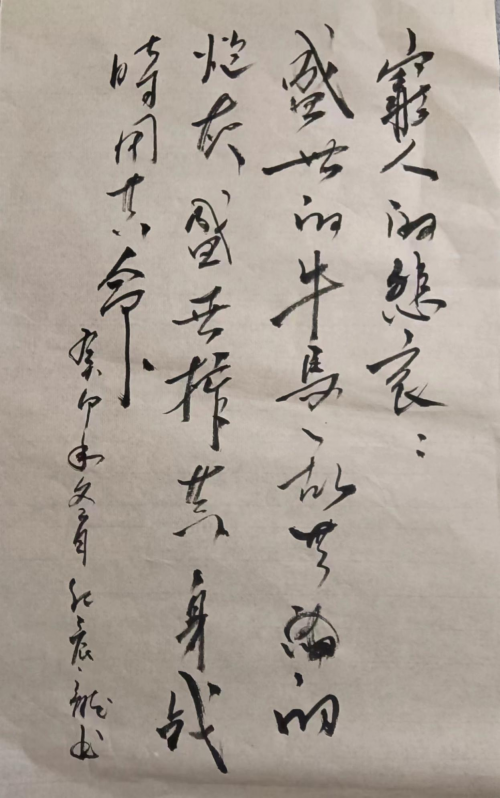 窮人的悲哀:
盛世的牛馬、乱世的
炮灰盛世榨其身战
時用其命
癸卯年文月 辰龍书